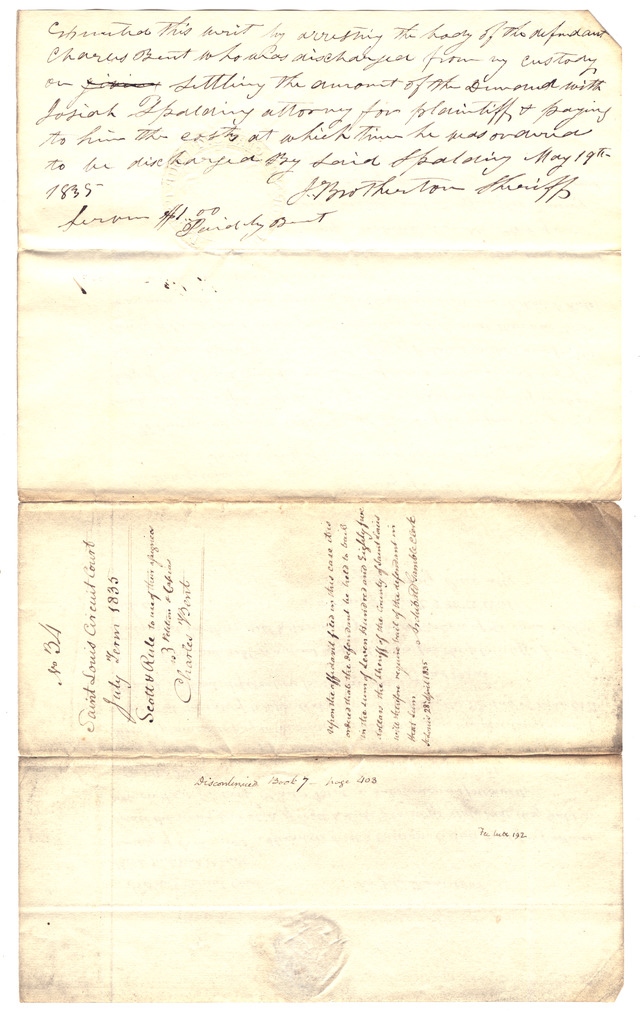 Executed this writ by arresting the body of the defendant
Charles Bent who was discharged from my custody
on settling the amount of the Demand with
Josiah Spalding attorney for plaintiff & paying
to him the costs at which time he was ordered
to be discharged By said Spalding May 19th
1835 J. Brotherton Sheriff
Service $1.00
Paid by Bent
No 34
Saint Louis Circuit Court
July Term 1835
Scott & Rule to use of their assignees
3 Petition &
Charles Bent
Upon the affidavit filed in this case it is
ordered that the defendant be held to bail
in the sum of Seven Hundred and Eighty five
dollars the sheriff of the county of Saint Louis
will therefore require bail of the defendant in
that sum Archibald Gamble Clerk
St Louis 28 April 1835
Discontinued Book 7 - page 403
Fee 192